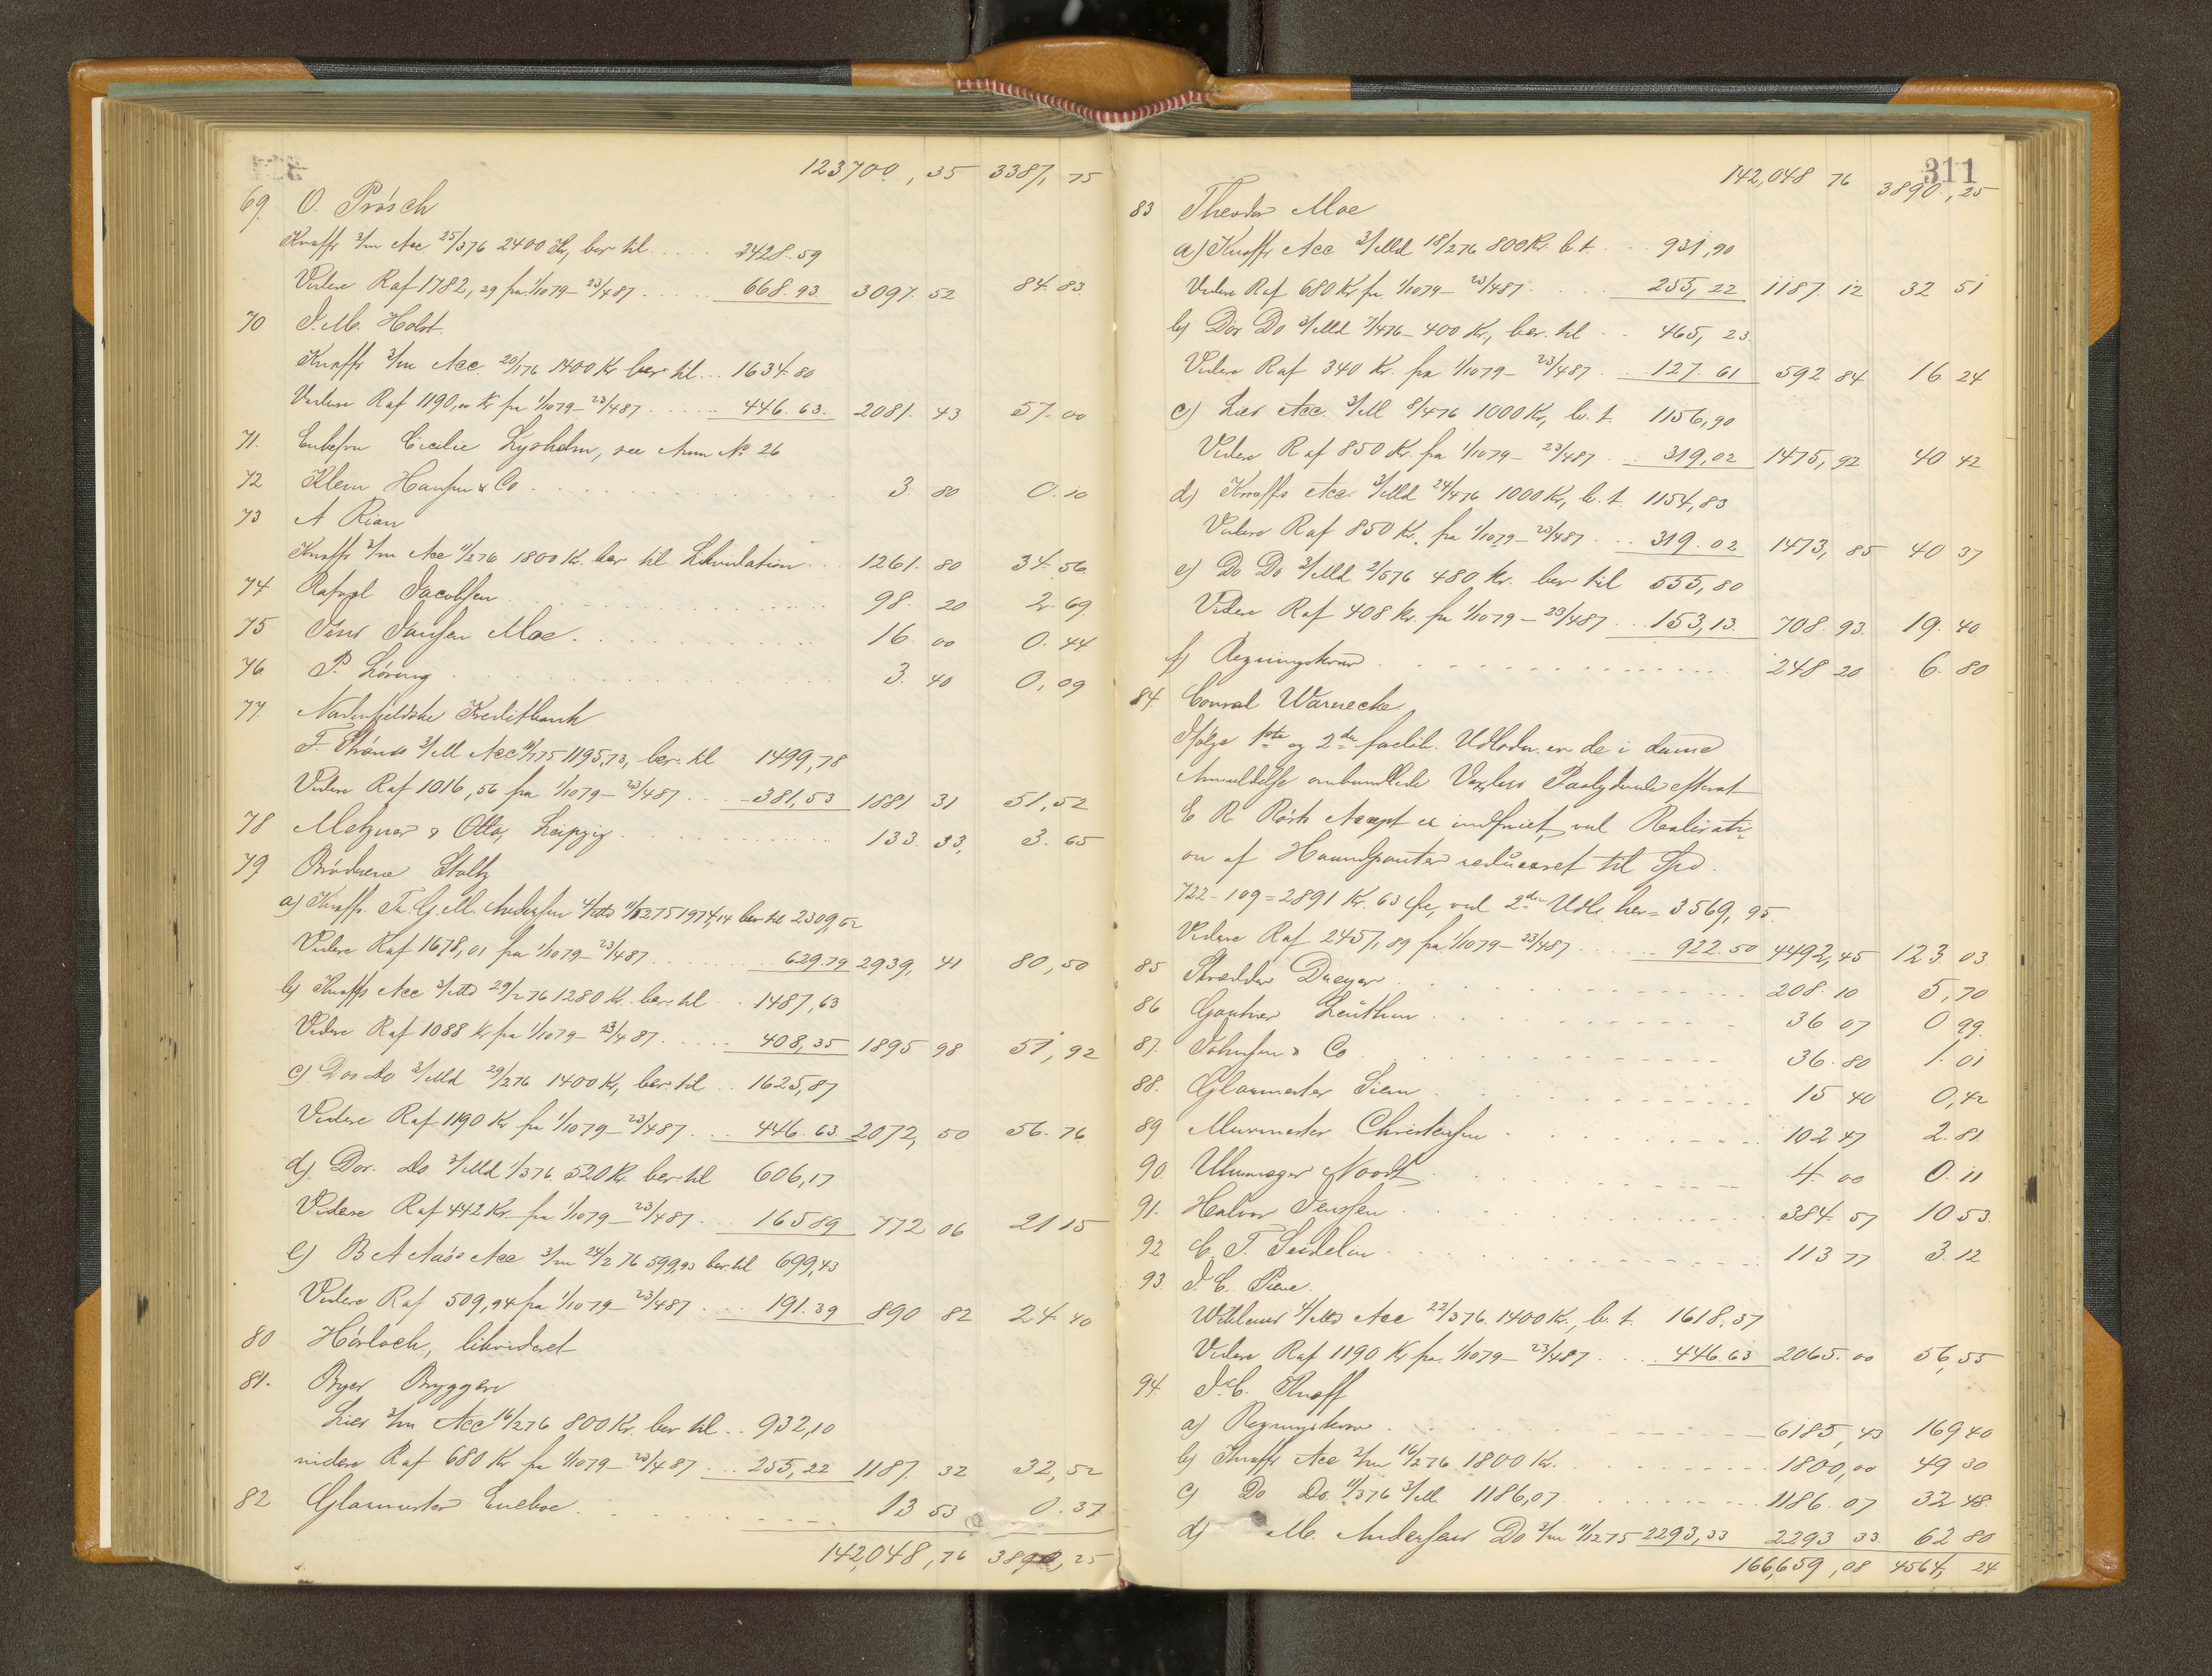 123700,35 3387,75
69. O. Prösch
Knoffs 3/m Acc. 25/3 76 2400 Kr, ber til ..... 2428.59
Videre Raf 1782,29 fra 1/10 79 - 23/4 87 ..... 668.93 3097.52 84.83
70 J. M. Holst.
Knoffs 3/m Acc. 20/1 76 1400 Kr ber til ... 1634.80
Videre Raf 1190,00 Kr fra 1/10 79 - 23/4 87 ..... 446.63. 2081.43 57.00
71. Enkefru Cicilie Lysholm, see Anm No 26
72 Klem Hansen & Co ..... 3.80 0.10
73 A Rian
Knoffs 3/m Acc 11/2 76 1800 Kr. ber til Likvidation ... 1261.80 34.56
74 Rafael Jacobsen ..... 98.20 2.69
75 Jens Jansen Moe ..... 16.00 0.44
76 P. Löning ..... 3.40 0,09
77. Nordenfjeldske Kreditbank
3/M Acc 75 1195,73, ber. til 1499,78
Videre Raf 1016,56 fra 1/10 79 - 23/4 87 ... 381,53 1881 31 51,52
78 Metzner & Otto, Leipzig ..... 133.33, 3.65
79 Brödrene Stoltz
a) Knoffs. Th. G. M. Andersen 11/12 75 1974,14 ber til 2309,62
Videre Raf 1678,01 fra 1/10 79 - 23/4 87 ..... 629.79 2939,41 80,50
b) Knoffs Acc 3/Md 29/2 76 1280 Kr. ber til .. 1487,63
Videre Raf 1088 Kr fra 1/10 79 - 23/4 87 ..... 408,35 1895 98 51,92
c) Do Do 3/Md 29/2 76 1400 Kr, ber. til .. 1625,87
Videre Raf 1190 Kr fra 1/10 79 - 23/4 87 ... 446.63 2072,50 56.76
d) Do. Do 3/Md 1/3 76 520 Kr. ber til 606,17
Videre Raf 442 Kr fra 1/10 79 - 23/4 87 ... 165 89 772 06 21 15
e) B A Aas's Acc 3/m 24/2 76 599,93 ber. til 699,43
Videre Raf 509,94 fra 1/10 79 - 23/4 87 ... 191.39 890 82 24.40
80 Hörloch, likvideret
81. Byes Bryggeri
Lies 3/m Acc 16/2 76 800 Kr. ber til .. 932,10
videre Raf 680 Kr fra 1/10 79 - 23/4 87 ... 255,22 1187.32 32,52
82 Glarmester Eneboe ..... 13 53 0.37
142,048,76 3890,25
311
142,048 76 3890,25
83 Theodor Moe
a) Knoffs Acc 3/Md 18/2 76 800 Kr. b.t. .. 931,90
Videre Raf 680 Kr fra 1/10 79 - 23/4 87 ..... 255,22 1187.12 32 51
b) Do Do 3/Md 7/4 76 - 400 Kr, ber. til .. 465,23.
Videre Raf 340 Kr. fra 1/10 79 - 23/4 87 ... 127.61 592 84 16 24
c) Lies Acc. 3/M 8/4 76 1000 Kr, b. t. 1156,90
Videre Raf 850 Kr. fra 1/10 79 - 23/4 87 ... 319,02 1475,92 40 42
d) Knoffs Acc 3/Md 24/4 76 1000 Kr, b. t. 1154,83
Videre Raf 850 Kr. fra 1/10 79 - 23/4 87 ... 319.02 1473,85 40 37
e) Do Do 3/Md 2/5 76 480 Kr. ber til 555,80
Videre Raf 408 Kr. fra 1/10 79 - 23/4 87 ... 153,13. 708.93. 19.40
f) Regningskrav ..... 248 20 6.80
84. Conrad Warnecke
Ifölge 1ste og 2den Udlodn. er de i denne
Anmeldelse omhandlede Vexlers Paalydende efterat
E R Accept er indfriet, ved Realisati-
on af Haandpanter reduceret til Spd.
722 - 109 = 2891 Kr. 63 Öre, ved 2den Udl. ber = 3569,95.
Videre Raf 2457,89 fra 1/10 79 - 23/4 87 ..... 922.50 4492,45 123.03
85 Skrædder Dreyer ..... 208.10 5,70
86 Gartner Leuthen ..... 36 07 0 99.
87. Johnsen & Co ..... 36.80 1.01
88. Glarmester Siem ..... 15 40 0,42
89 Murmester Christensen ..... 102 47 2.81
90. Uhrmager Noodt ..... 4.00 0.11
91. Halvor Jenssen ..... 384.57 10 53.
92 C. F. Seidelin ..... 113 77 3.12
93. J. C. Piene
3/Md Acc 22/3 76. 1400 Kr., b. t. 1618.37
Videre Raf 1190 Kr fra. 1/10 79 - 23/4 87 ..... 446.63 2065.00 56,55
94. J. C. Knoff
a) Regningskrav ..... 6185,43 169 40
b) Knoffs Acc 3/m 16/2 76 1800 Kr. ..... 1800,00 49 30
c) Do Do. 11/3 76 3/M. 1186,07 ..... 1186.07 32 48
d) M. Andersens Do 3/m 11/12 75 2293,33 2293 33. 62 80
166,659,08 4564,24